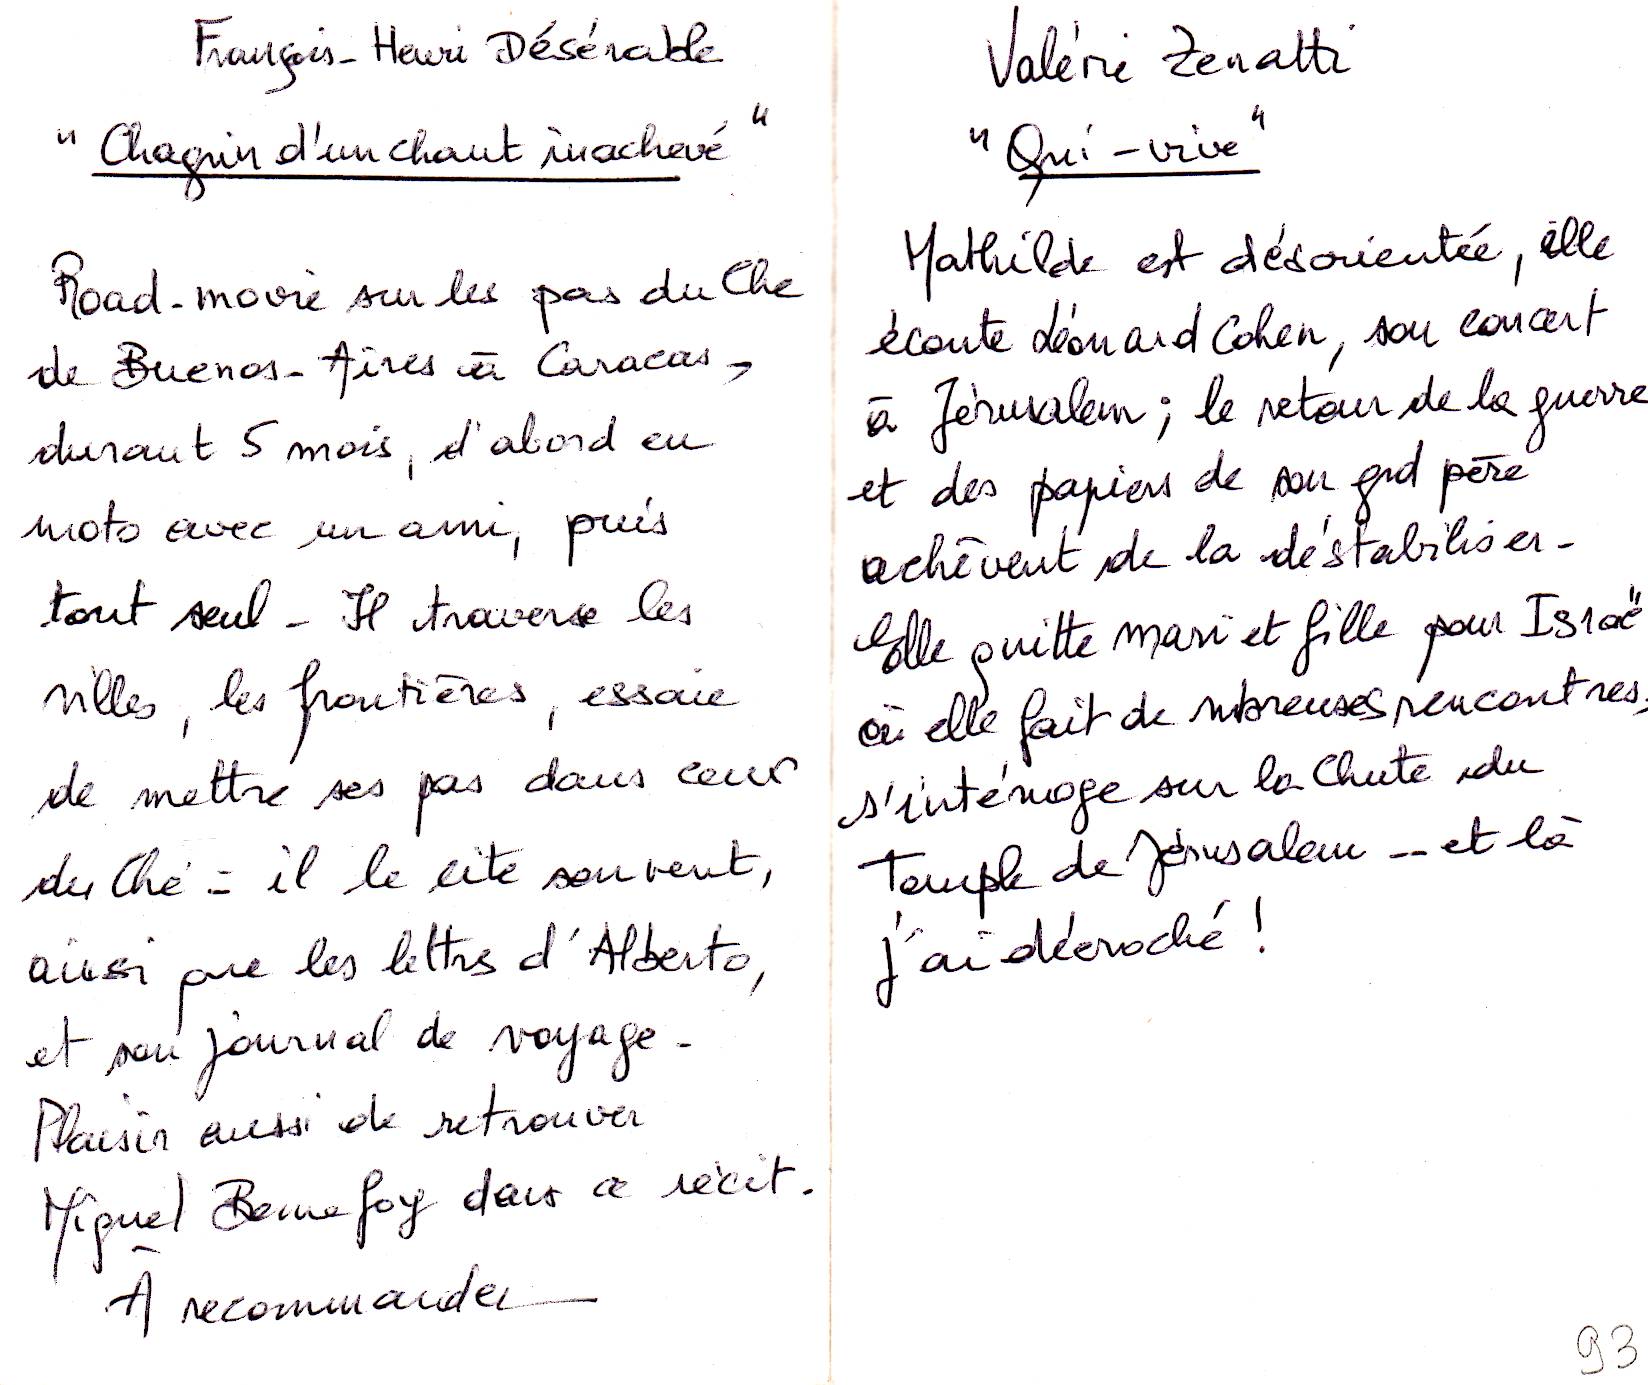 François-Henri Désérable
"Chagrin d'un chant inachevé"
Road-movie sur les pas du Che
de Buenos-Aires à Caracas,
durant 5 mois, d'abord en
moto avec un ami, puis
tout seul - Il traverse les
villes, les frontières, essaie
de mettre ses pas dans ceux
du Che = il le cite souvent,
ainsi que les lettres d'Alberto,
et son journal de voyage -
Plaisir aussi de retrouver
Miguel Bonnefoy dans ce récit.
À recommander
Valérie Zenatti
"Qui-vive"
Mathilde est désorientée, elle
écoute Léonard Cohen, son concert
à Jérusalem ; le retour de la guerre
et des papiers de son grd père
achèvent de la déstabiliser -
Elle quitte mari et fille pour Israë
où elle fait de nbreuses rencontres,
s'intérroge sur la Chute du
Temple de Jérusalem -- et là
j'ai décroché !
93